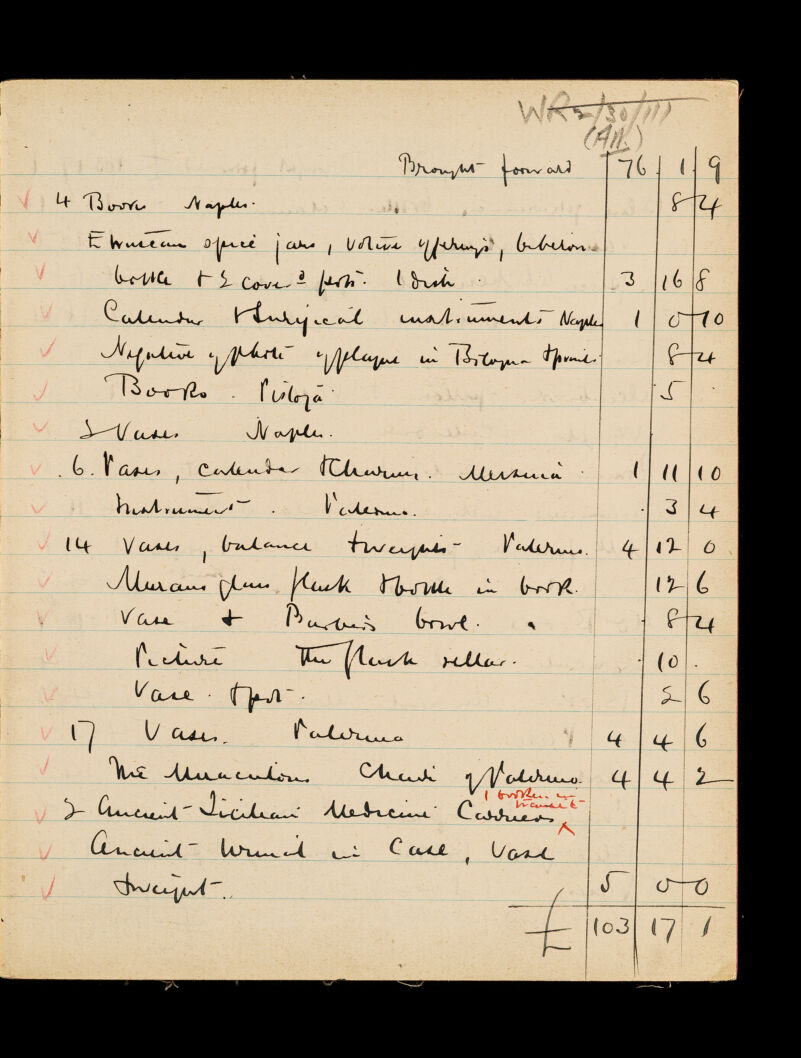 WR2/30/111
(All.)
Brought forward 76 1 9
4 Books Naples. 8 4
Etruscan spice jars, votive offerings, biberon
bottle & 2 cover.d pots. 1 dish 3 16 8
Calendar & Surgical instruments Naples 1 0 10
Negative of photo of plague in Bologna & prints 8 4
Books. Pistoja 5
2 Vases Naples.
6. Vases, calendar & Charm. Messina 1 11 10
Instrument. Palermo. 3 4
14 Vases, balance & weights Palermo. 4 12 0
Murano glass flask & bottle in book. 12 6
Vase & Barber's bowl. 8 4
Picture The flask seller. 10 .
Vase. & pot. 2 6
17 Vases. Palermo 4 4 6
The Miraculous of Palermo. 4 4 2
1 broken in
transit
2 Ancient Sicilian Medicine Carriers
Ancient in Case, Vase
& weight. 5 0 0
£ 103 17 1